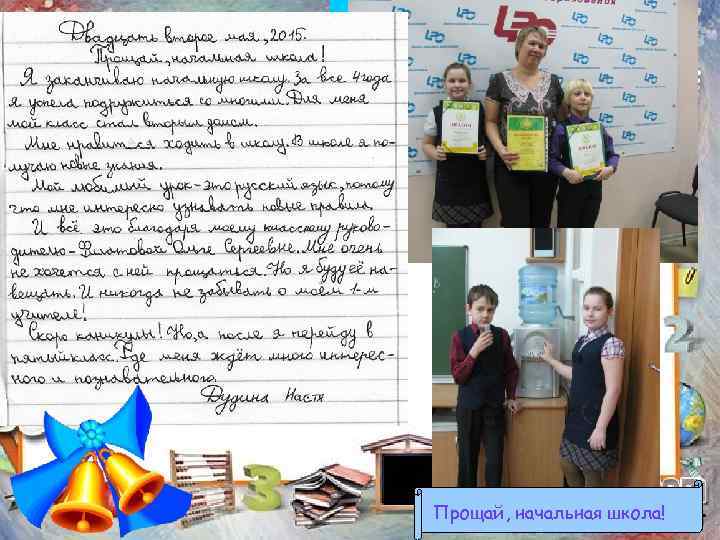 Двадцать второе мая, 2015.
Прощай, начальная школа!
Я заканчиваю начальную школу. За все 4 года
я успела подружиться со многими. Для меня
мой класс стал вторым домом.
Мне нравится ходить в школу. В школе я по-
лучаю новые знания.
Мой любимый урок - это русский язык, потому
что мне интересно узнавать новые правила.
И всё это благодаря моему классному руково-
дителю - Филатовой Ольге Сергеевне. Мне очень
не хочется с ней прощаться. Но я буду её на-
вещать. И никогда не забывать о моём 1-м
учителе!
Скоро каникулы! Но, а после я перейду в
пятый класс. Где меня ждёт много интерес-
ного и познавательного.
Дудина Настя
ДИПЛОМ
ДИПЛОМ
Прощай, начальная школа!